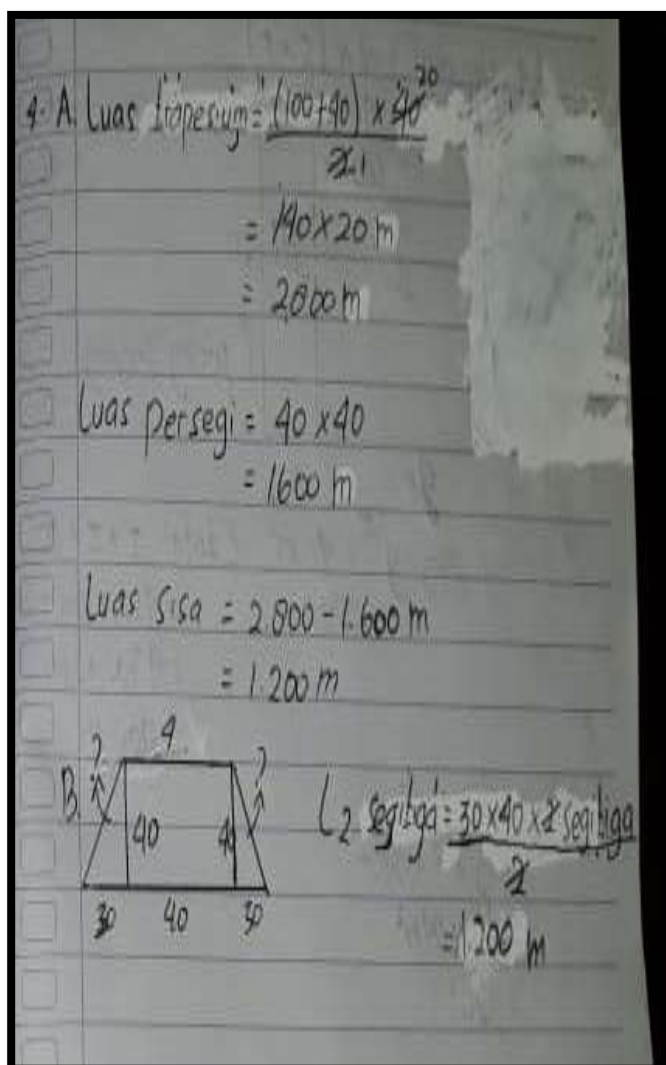 20
4. A. Luas trapesium = (100+40) x 40
2 1
= 140 x 20 m
= 2800 m
Luas persegi = 40 x 40
= 1600 m
Luas sisa = 2.800 - 1.600 m
= 1.200 m
? 4 ?
B. 40 40 L 2 segitiga = 30 x 40 x 2 segitiga
2
30 40 30
= 1.200 m